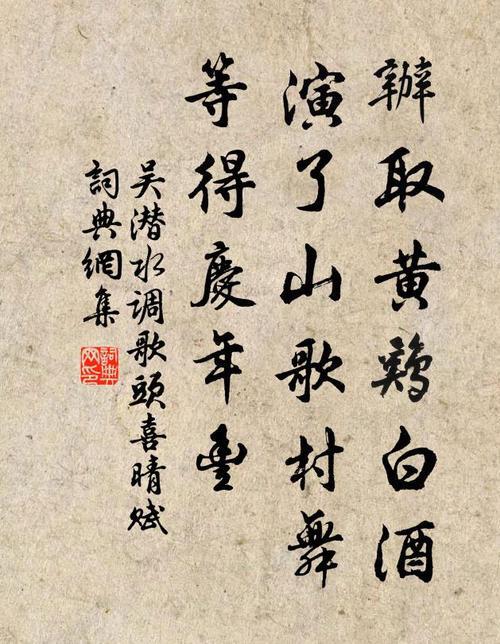 辦取黄鷄白酒
演了山歌村舞
等得慶年豐
吴潜水调歌頭喜晴赋
詞典網集
詞典网印